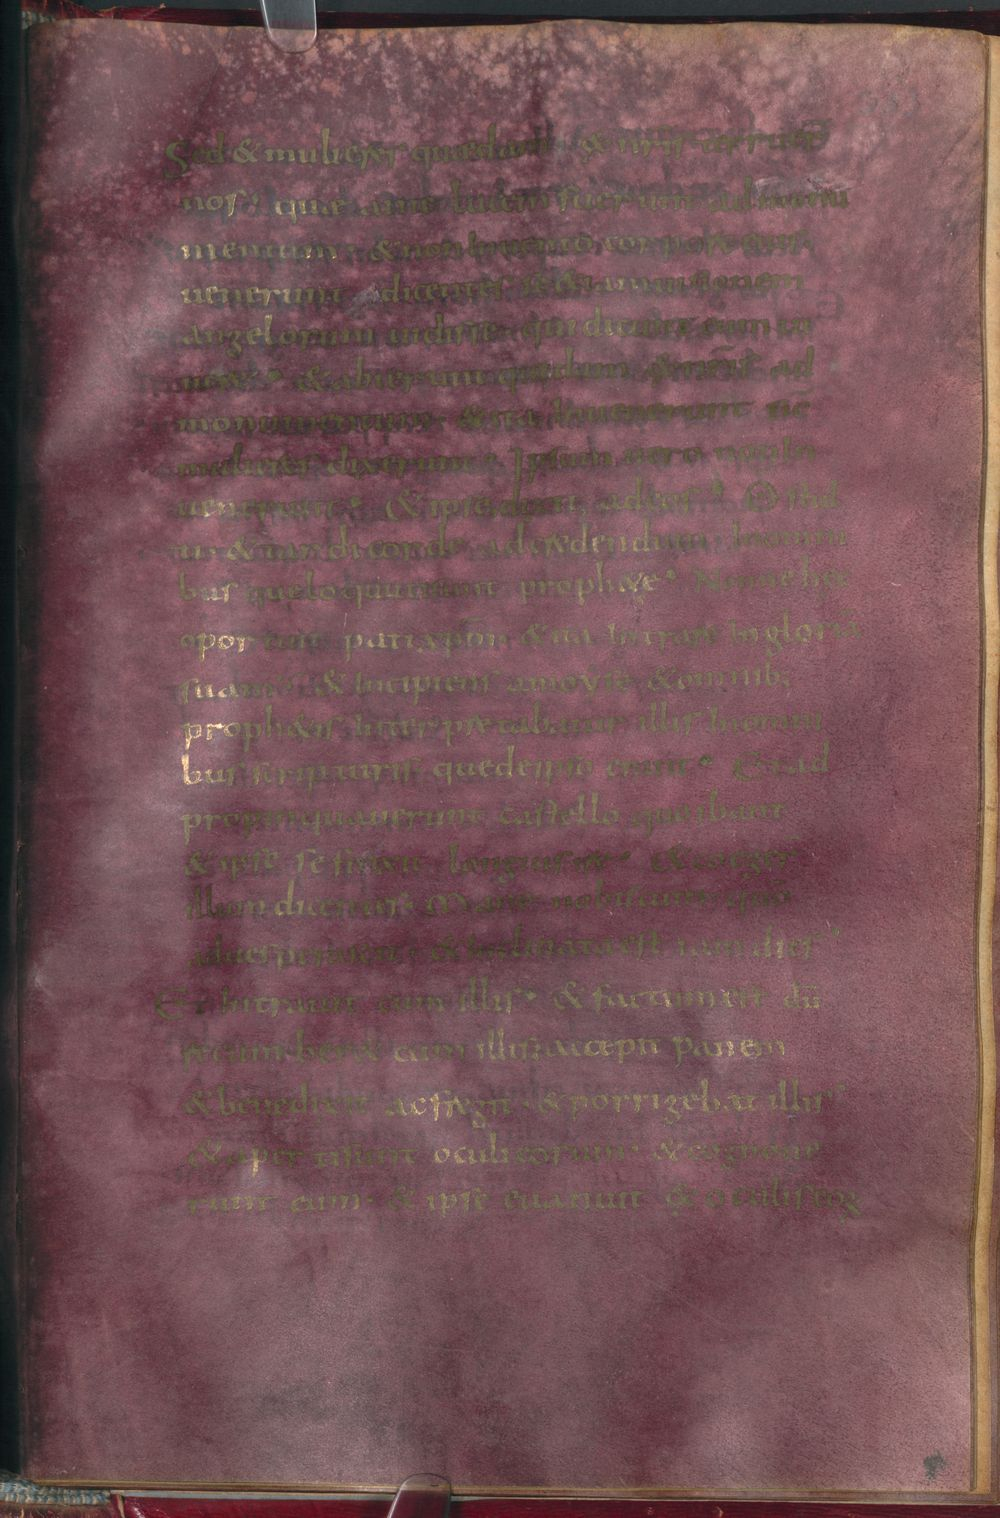 Sed & mulieres quedam & nr̄is terruer̄
nos. quae ante lucem fuerunt ad monu
mentum. & non Inuento corpore eius
uenerunt dicentes se &iam uisionem
angelorum uidisse. qui dicunt eum ui
uere. & abierunt quidam ad
monumentum. & ita Inuenerunt sic
mulieres dixerunt. Ipsum uero non In
uenerunt. & ipse dixit ad eos. O stul
ti & tardi corde ad credendum Inomni
bus que locuti sunt proph&e. Nonne hęc
oportuit pati xp̄m & ita Intrare In gloriā
suam. & Incipiens amoyse & omnib;
proph&is Interpretabatur illis Inomni
bus scripturis quedeipso erant. Et ad
propinquauerunt castello quo ibant
& ipse se finxit longius ire. & coeger
illum dicentes. Mane nobiscum qm̄
aduesperascit. & Inclinata est iam dies
Et Intrauit cum illis. & factum est dū
recumber& cum illis accepit panem
& benedixit ac fregit. & porrigebat illis
& aperti sunt oculi eorum. & cognoue
runt eum. & ipse euanuit ex oculis eoꝝ